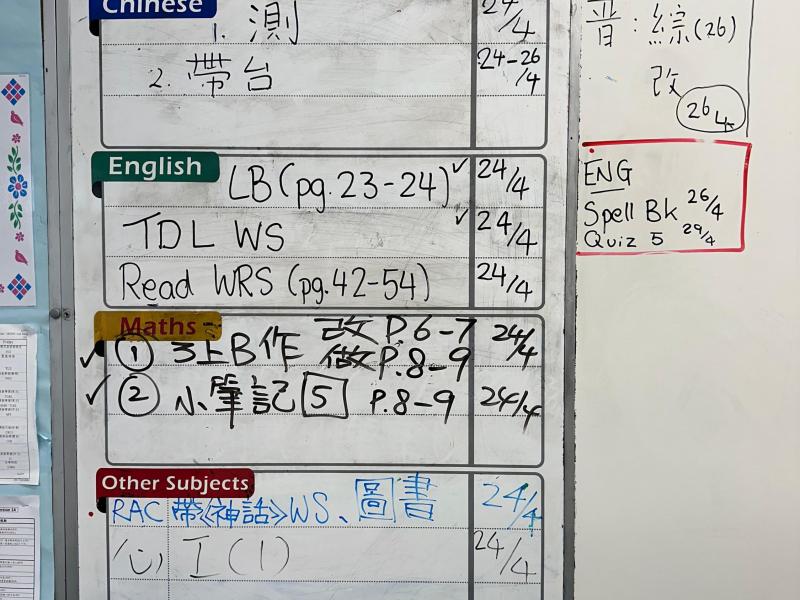 Chinese
1. 測 24/4
2. 帶台 24-26/4
English
LB (pg.23-24) ✓ 24/4
TDL WS ✓ 24/4
Read WRS (pg.42-54) 24/4
Maths
✓ ① 3上B作 改 P.6-7 24/4
做 P.8-9
✓ ② 小筆記 5 P.8-9 24/4
Other Subjects
RAC 帶《神話》WS、圖書 24/4
心 工(1) 24/4
普:綜(26)
改 26/4
ENG
Spell Bk 26/4
Quiz 5 29/4